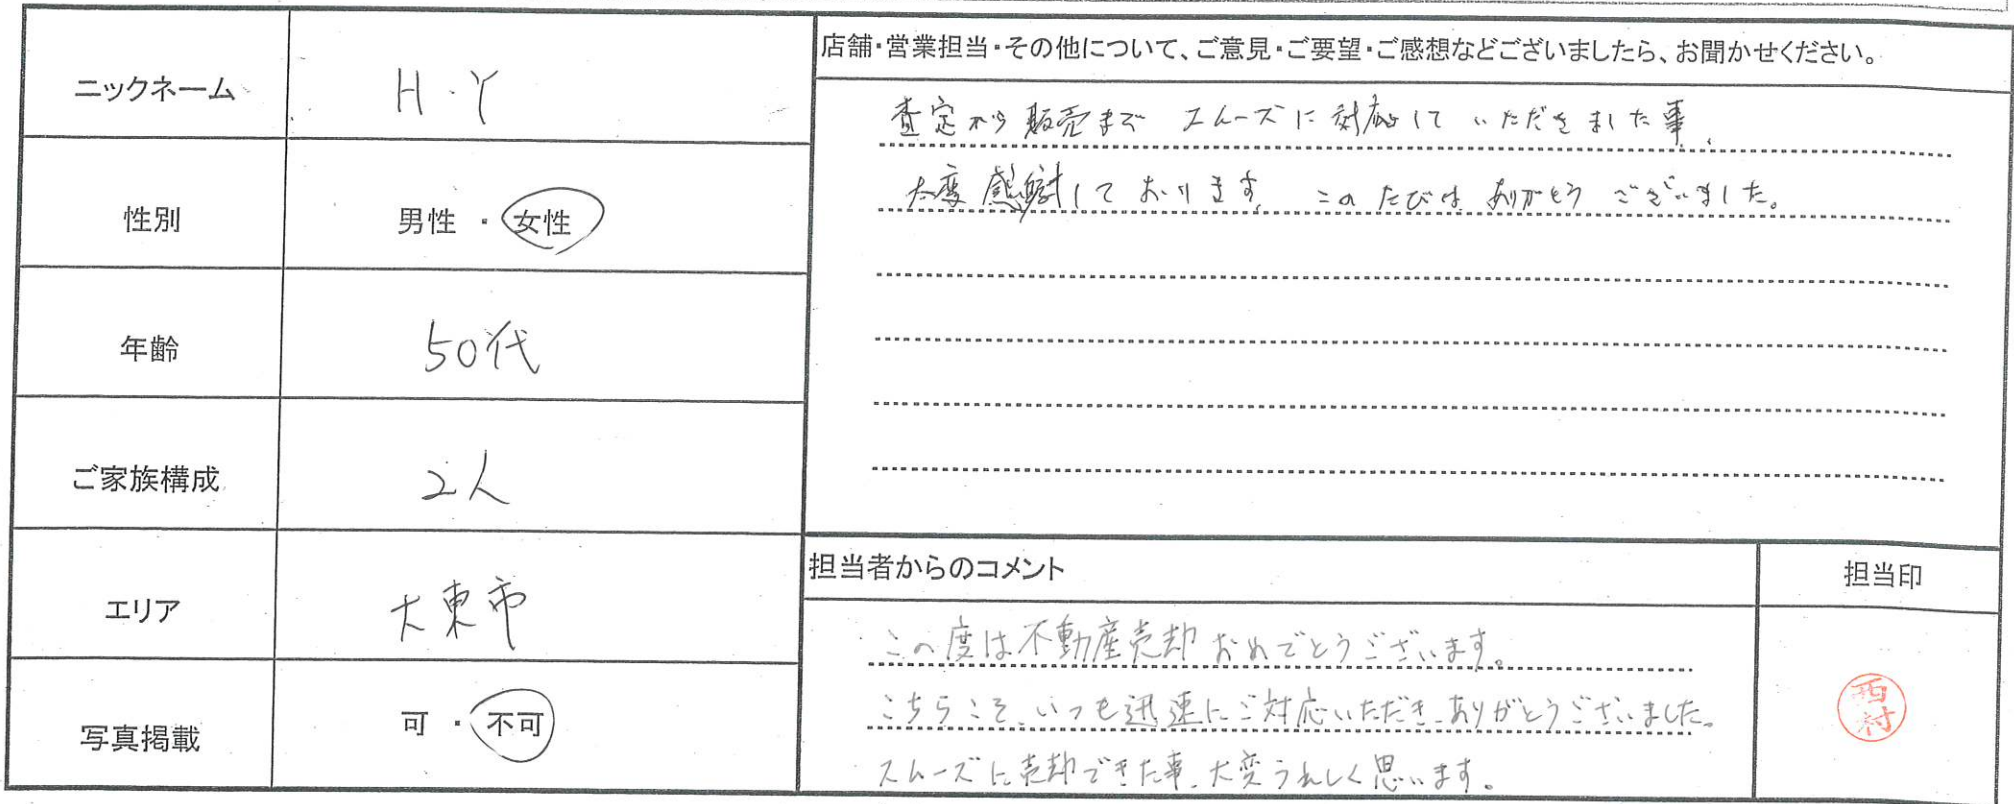 ニックネーム
H.Y
性別
男性 ・ 女性
年齢
50代
ご家族構成
2人
エリア
大東市
写真掲載
可 ・ 不可
店舗・営業担当・その他について、ご意見・ご要望・ご感想などございましたら、お聞かせください。
査定から販売まで スムーズに対応していただきました事、
大変感謝しております。このたびは、ありがとうございました。
担当者からのコメント
この度は不動産売却おめでとうございます。
こちらこそ、いつも迅速にご対応いただき、ありがとうございました。
スムーズに売却できた事、大変うれしく思います。
担当印
西村